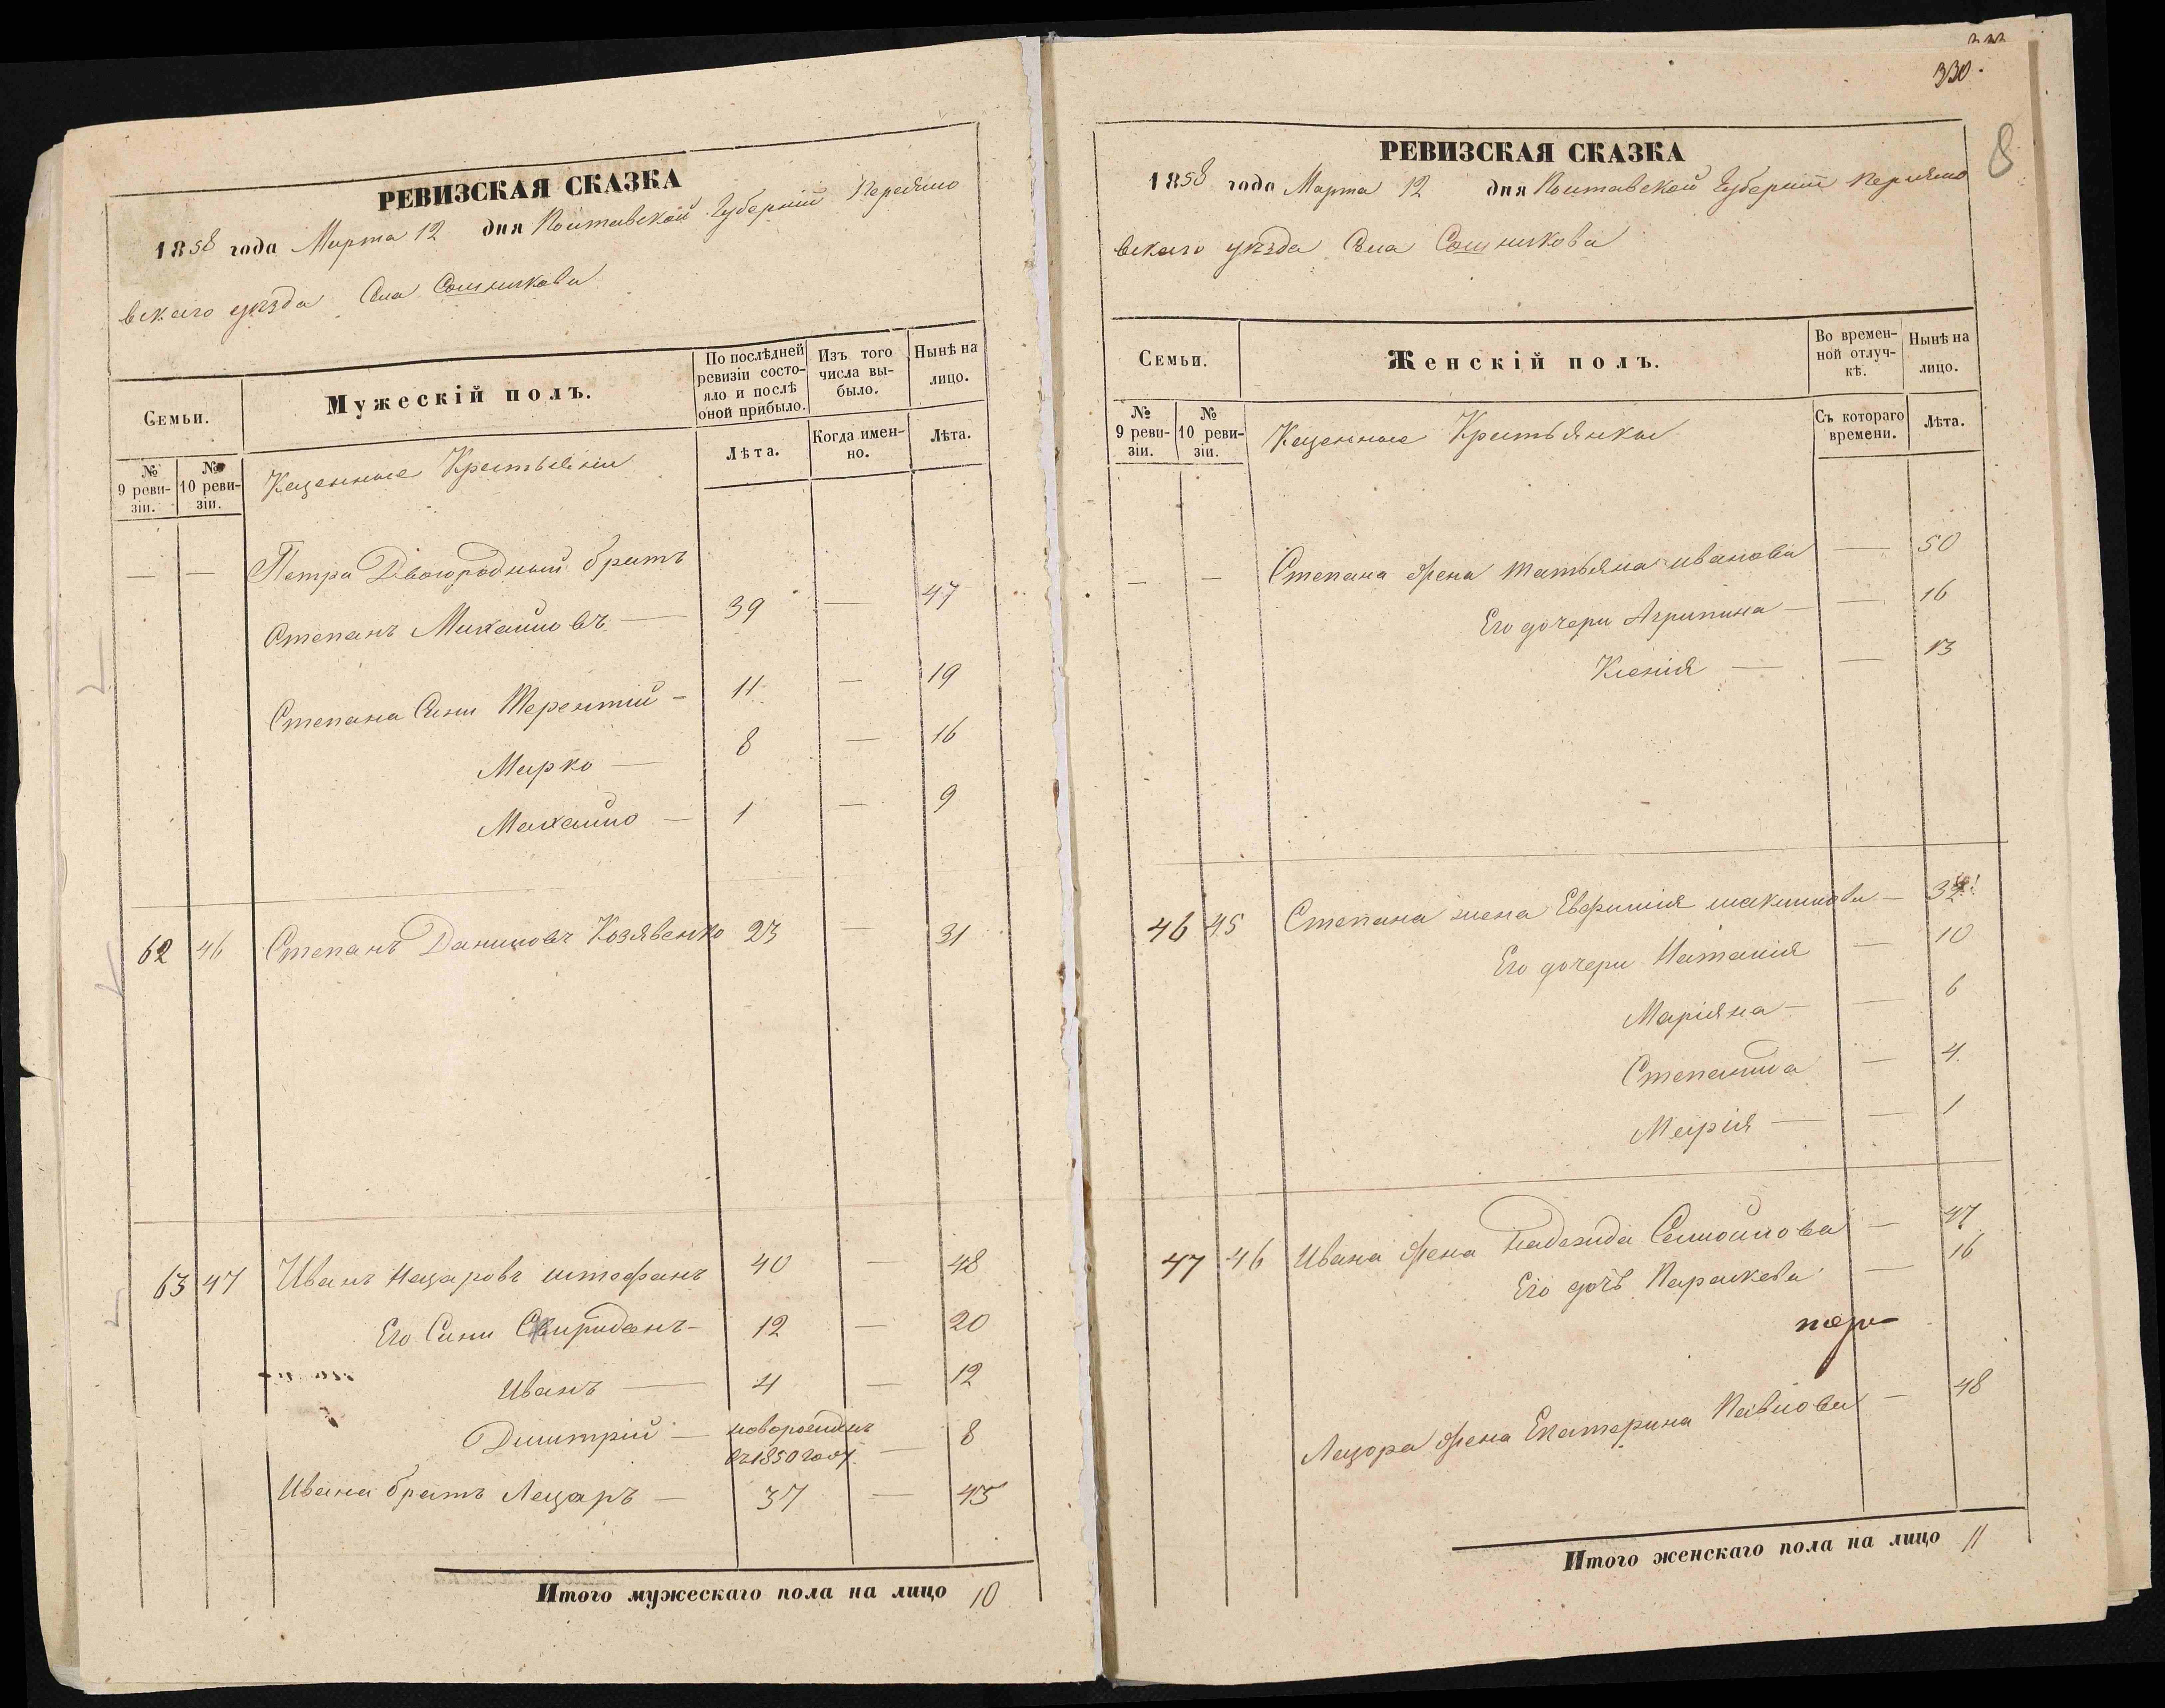 РЕВИЗСКАЯ СКАЗКА
1858 года Марта 12 дня Полтавской Губерніи Переясло
вскаго уѣзда Села Сошникова
Семьи.
Мужескій полъ.
По послѣдней ревизіи состояло и послѣ оной прибыло.
Изъ того числа выбыло.
Нынѣ на лицо.
№ 9 ревизіи.
№ 10 ревизіи.
Казенные Крестьяни
Лѣта.
Когда именно.
Лѣта.
— — Петра Двоюродный братъ
Степанъ Михайловъ — 39 — 47
Степана Сини Терентій — 11 — 19
Марко — 8 — 16
Михайло — 1 — 9
62 46 Степанъ Даниловъ Козявенко 23 — 31
63 47 Иванъ Назаровъ Штефанъ 40 — 48
Его Сини Свиридонъ — 12 — 20
Иванъ — 4 — 12
Дмитрій — новорожденъ
въ 1850 году — 8
Ивана братъ Лазаръ — 37 — 45
Итого мужескаго пола на лицо 10
330.
8
РЕВИЗСКАЯ СКАЗКА
1858 года Марта 12 дня Полтавской Губерніи Переясло
вскаго уѣзда Села Сошникова
Семьи.
Женскій полъ.
Во временной отлучкѣ.
Нынѣ на лицо.
№ 9 ревизіи.
№ 10 ревизіи.
Казенные Крестьянки
Съ котораго времени.
Лѣта.
— — Степана жена Татьяна Иванова — 50
Его дочери Агрипина — — 16
Ксенія — — 13
46 45 Степана жена Евфимія —
Его дочери Наталія — 10
Маріяна — — 6
Степанида — 4
Марія — — 1
47 46 Ивана жена Надежда Самойлова — 47
Его дочь Параскева — 16
Лазора жена Екатерина Павлова — 48
Итого женскаго пола на лицо 11